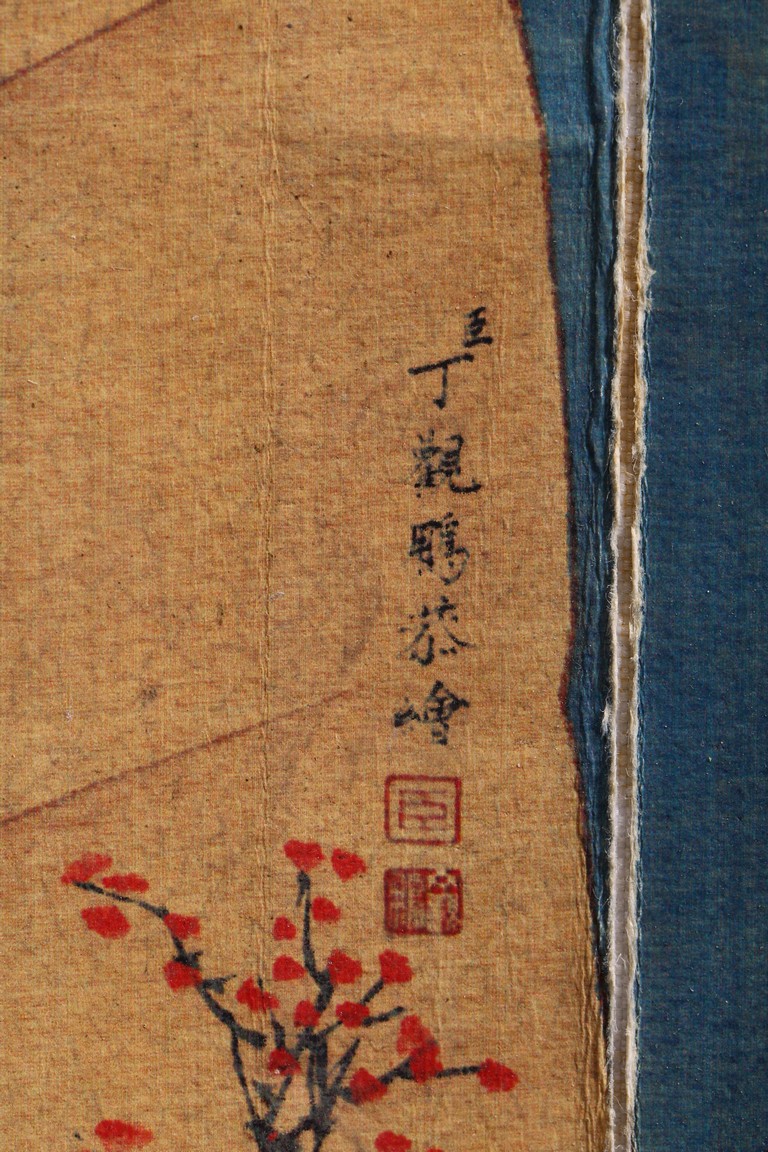 臣丁觀鵬恭繪
臣